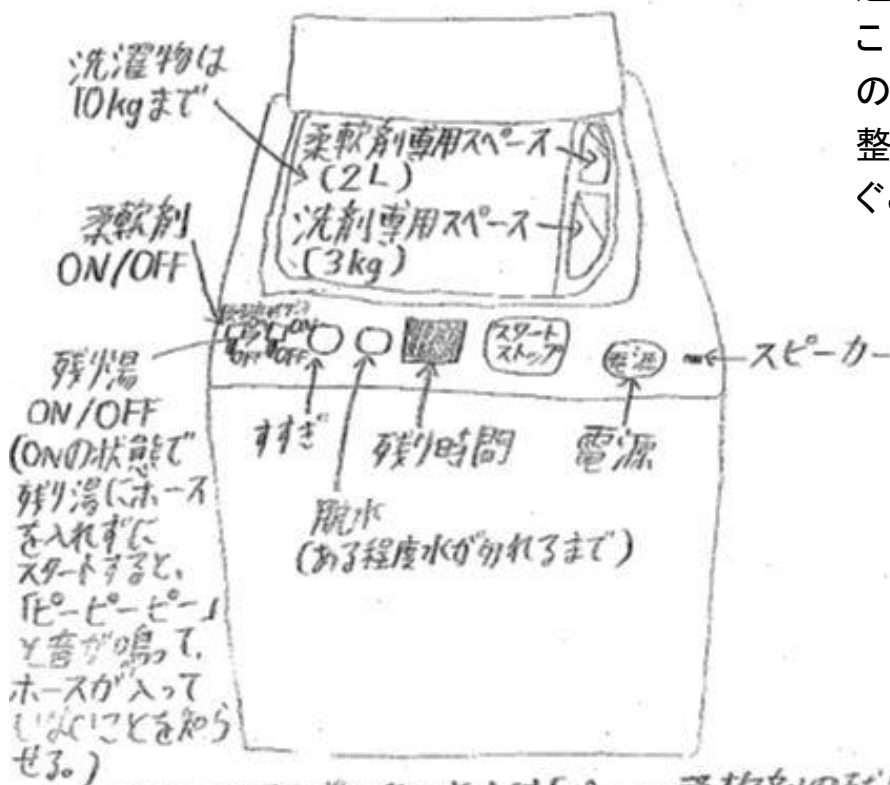 洗濯物は
10kgまで
柔軟剤専用スペース
(2L)
洗剤専用スペース
(3kg)
柔軟剤
ON/OFF
ON
OFF
OFF
スタート
ストップ
電源
スピーカー
残り湯
ON/OFF
(ONの状態で
残り湯にホース
を入れずに
スタートすると、
「ピーピーピー」
と音が鳴って、
ホースが入って
いないことを知ら
せる。)
すすぎ
脱水
(ある程度水が切れるまで)
残り時間
電源
こ
の
整